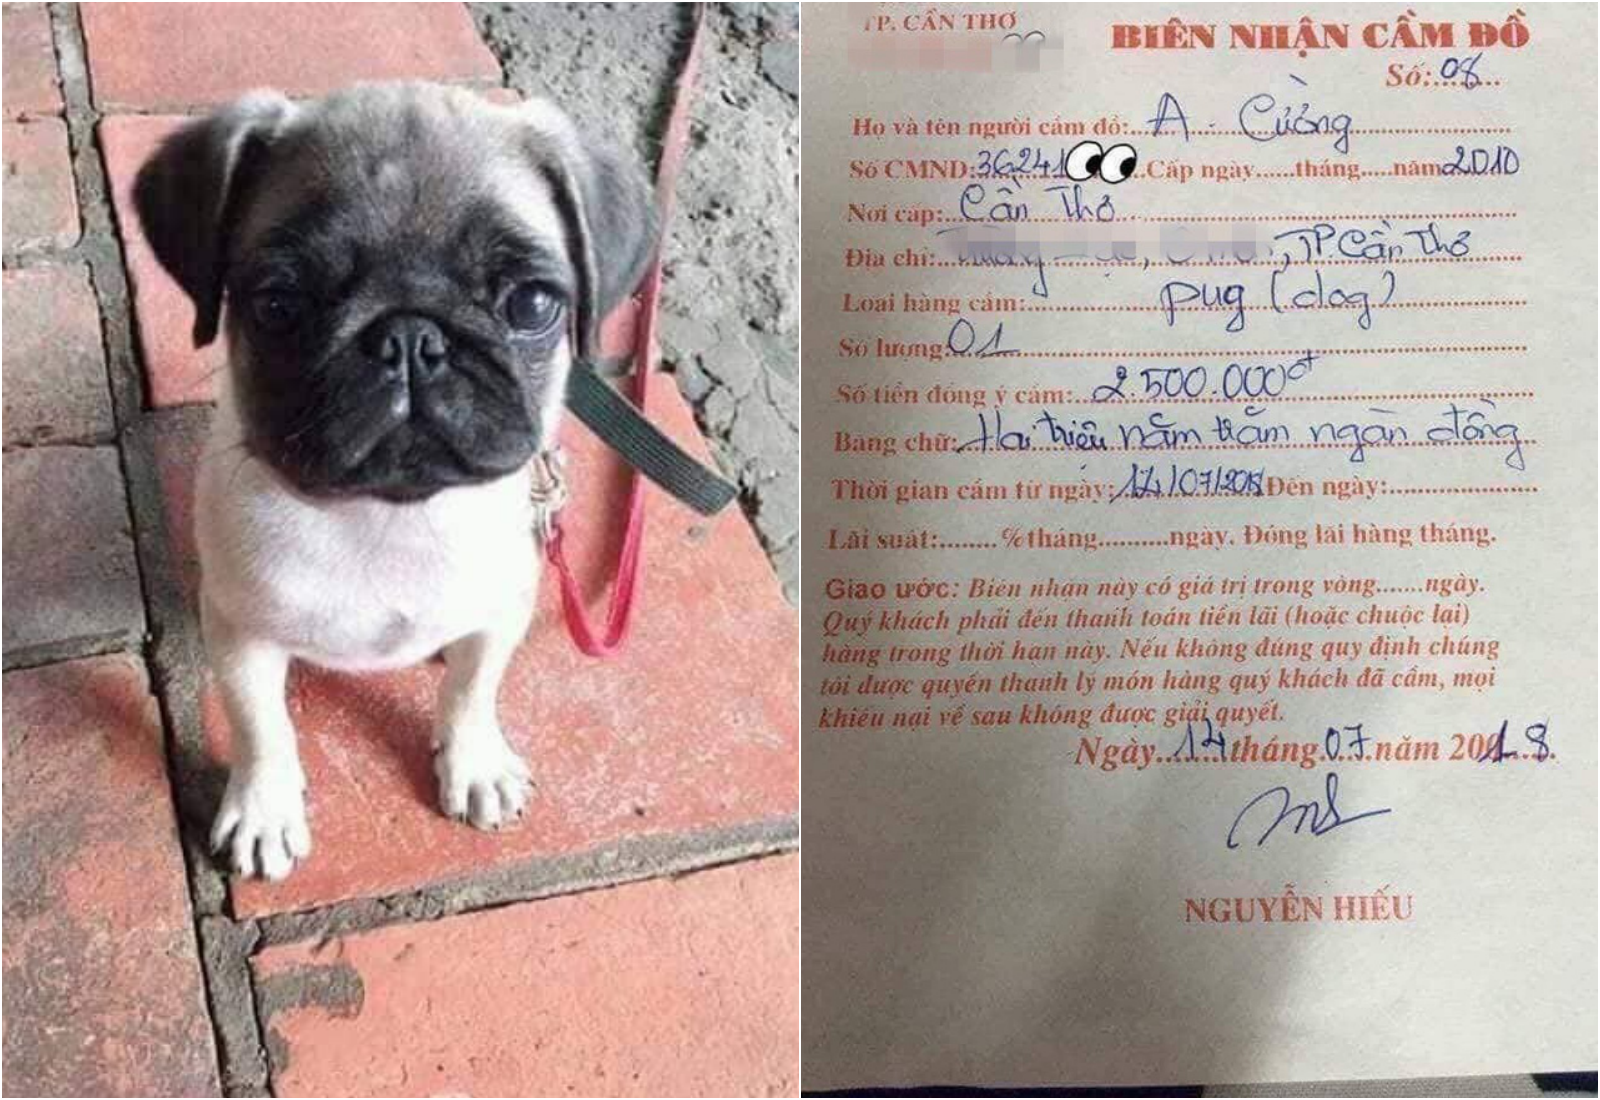 TP. CẦN THƠ
BIÊN NHẬN CẦM ĐỒ
Số:..08...
Họ và tên người cầm đồ:...A - Cường
Số CMND:36241 Cấp ngày......tháng.....năm 2010
Nơi cấp: Cần Thơ
Địa chỉ: TP. Cần Thơ
Loại hàng cầm: pug (dog)
Số lượng: 01
Số tiền đồng ý cầm: 2.500.000đ
Bằng chữ: Hai triệu năm trăm ngàn đồng
Thời gian cầm từ ngày: 14/07/2018 Đến ngày:
Lãi suất:........%tháng..........ngày. Đóng lãi hàng tháng.
Giao ước: Biên nhận này có giá trị trong vòng.......ngày.
Quý khách phải đến thanh toán tiền lãi (hoặc chuộc lại)
hàng trong thời hạn này. Nếu không đúng quy định chúng
tôi được quyền thanh lý món hàng quý khách đã cầm, mọi
khiếu nại về sau không được giải quyết.
Ngày...14 tháng.07.năm 2018.
NGUYỄN HIẾU